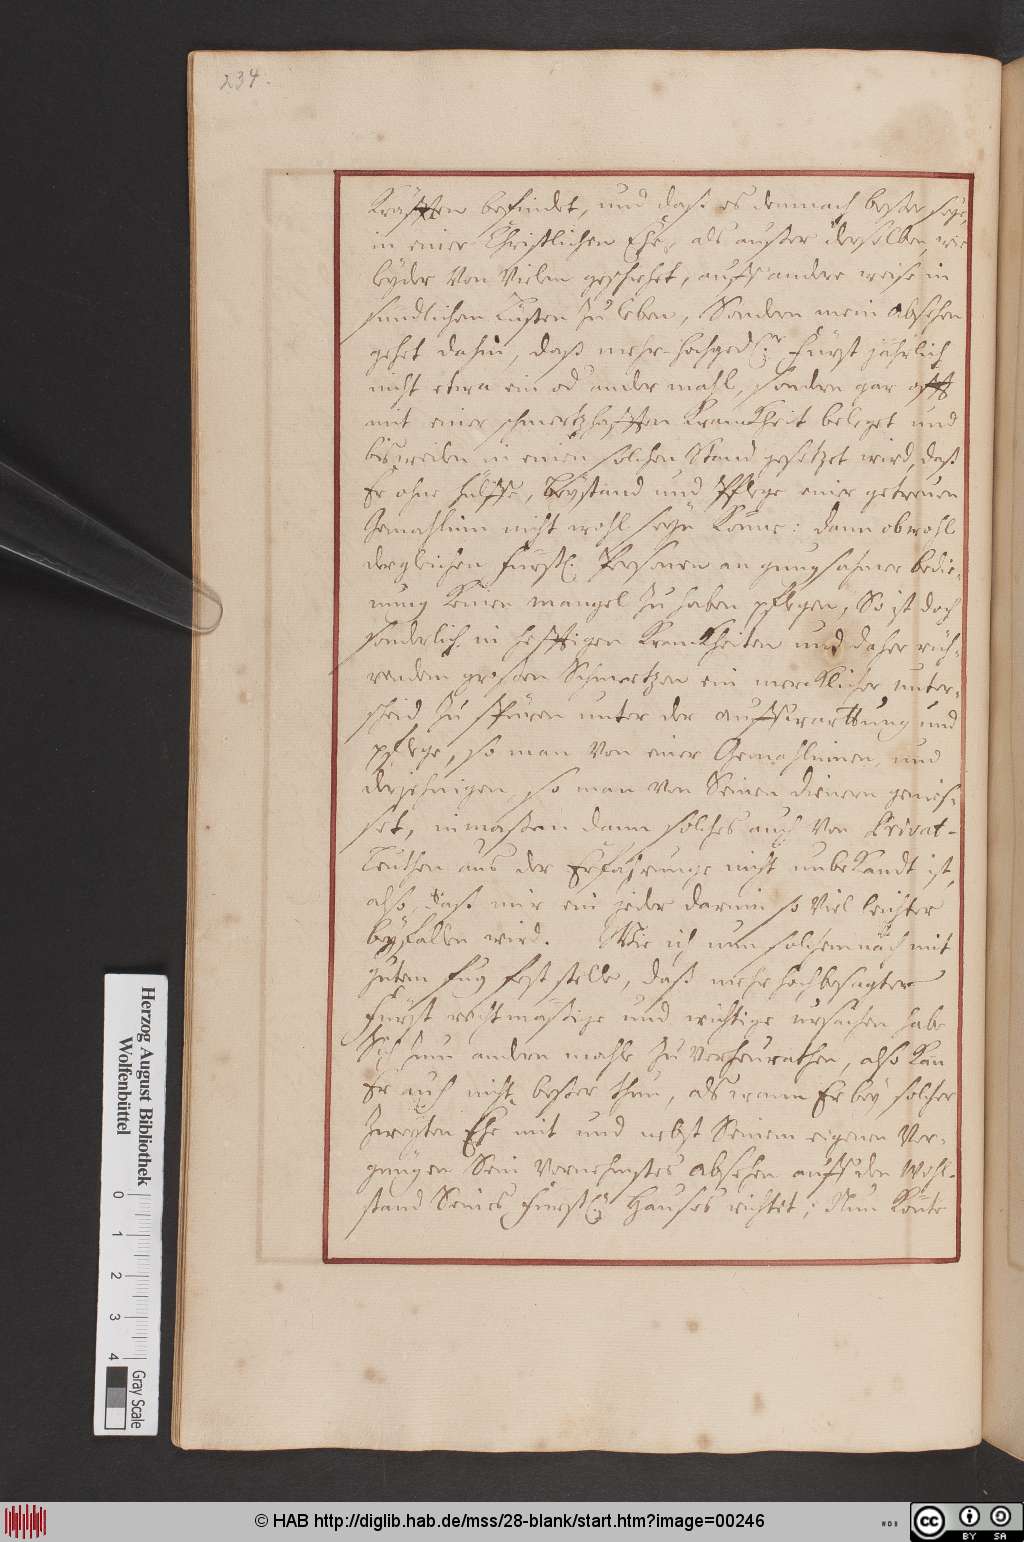 234.
Kräfften befindet, und daß es demnach besser seye,
in einer Christlichen Ehe, als außer derselben, wie
leyder von Vielen geschiehet, auff andere weise in
sündlichen Lüsten zu leben, Sondern mein absehen
gehet dahin, daß mehr-hochged. Fürst jährlich
nicht etwa ein od ander mahl, sondern gar offt
mit einer schmertzhafften Kranckheit beleget und
bisweilen in einen solchen Stand gesetzet wird, daß
Er ohne hülffe, beystand und Pflege einer getreuen
Gemahlinn nicht wohl seyn könne: dann obwohl
dergleichen Fürstl. Personen an gungsahmer bedie-
nung keinen mangel zu haben pflegen, So ist doch
sonderlich in hefftigen Kranckheiten und daher rüh-
renden großen Schmertzen ein mercklicher unter-
scheid zu spüren unter der auffwarttung und
pflege, so man von einer Gemahlinnen, und
derjehnigen, so man von Seinen dienern genies-
set, inmaßen dann solches auch von Privat-
Leuthen aus der Erfahrunge nicht unbekandt ist,
also, daß mir ein jeder darinn so viel leichter
beyfallen wird. Wie ich nun solchemnach mit
gutem fug fest stelle, daß mehr hochbesagter
Fürst rechtmäßige und wichtige ursachen habe
Sich zum andern mahle zu verheurathen, also kan
Er auch nicht besser thun, als wann Er bey solcher
zweyten Ehe mit und nebst Seinem eigenen Ver-
gnügen Sein vornehmstes absehen auff den Wohl-
stand Seines Fürstl. Hauses richtet; Nun könte
Herzog August Bibliothek
Wolfenbüttel
0 1 2 3 4
Gray Scale
© HAB http://diglib.hab.de/mss/28-blank/start.htm?image=00246
WDB
cc BY SA